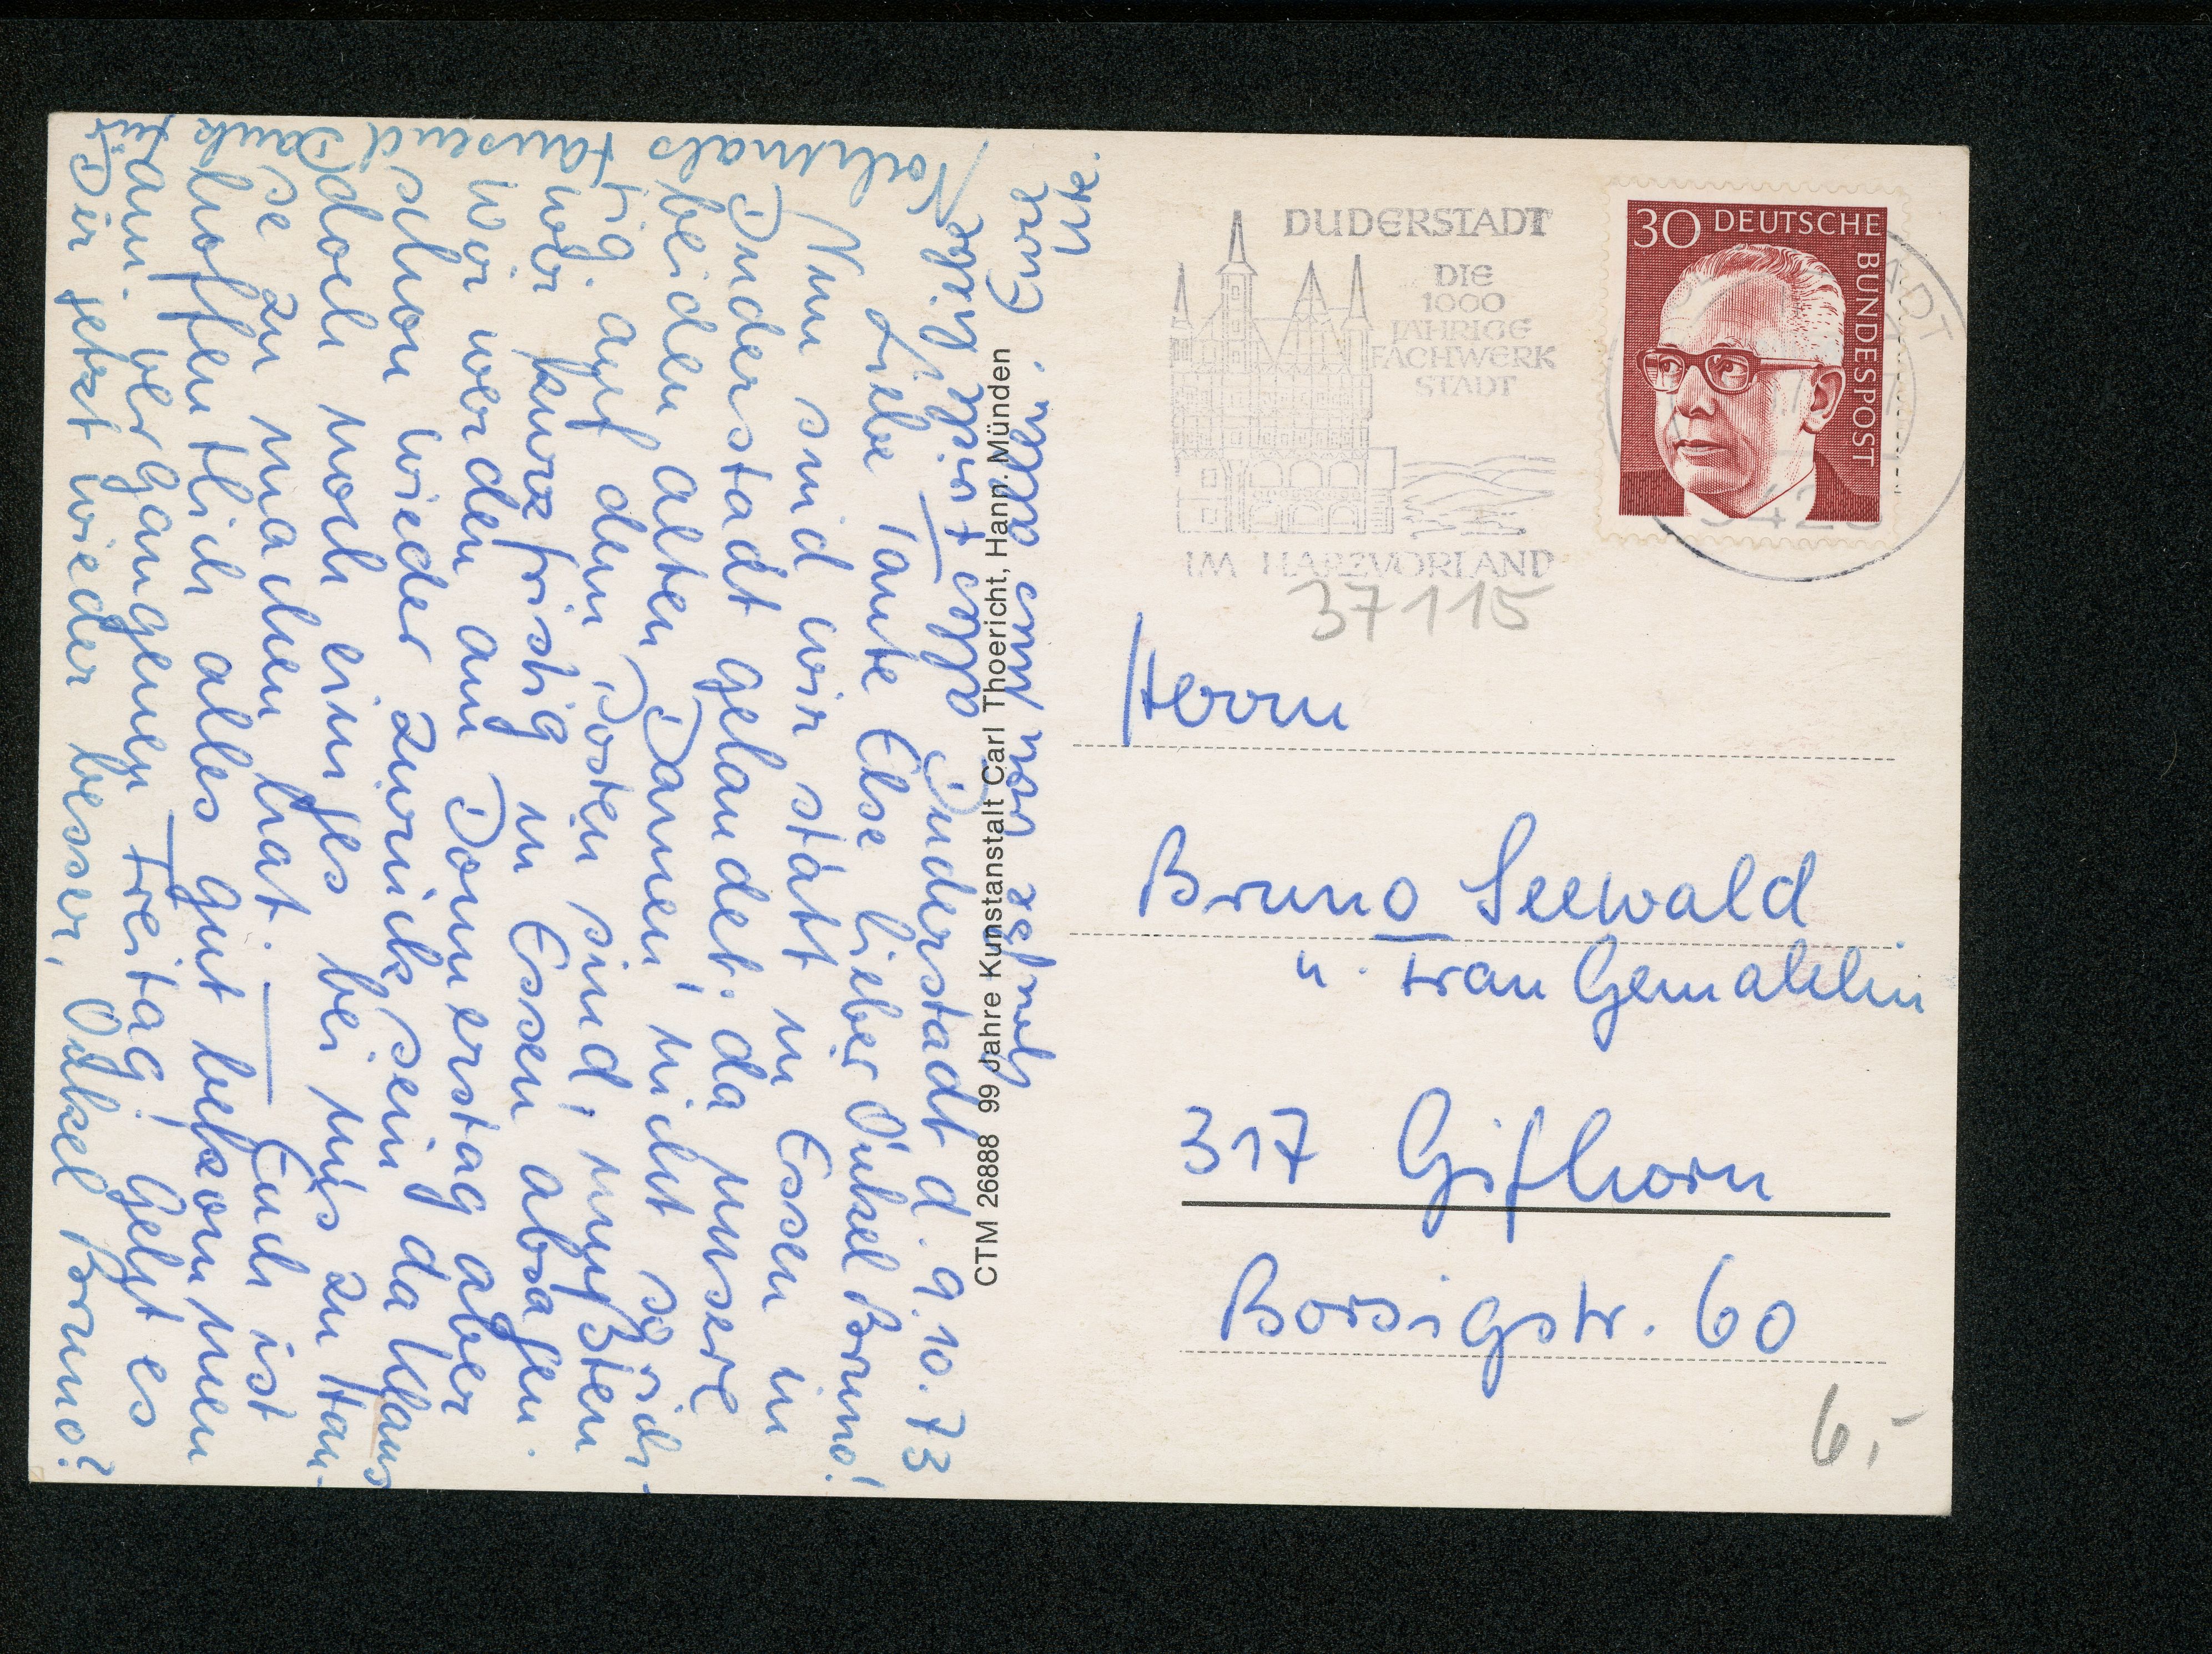 Duderstadt d. 9.10.73
Liebe Tante Else lieber Onkel Bruno!
Nun sind wir statt in Essen in
Duderstadt gelandet; da unsere
beiden alten Damen, nicht so rich-
tig auf dem Posten sind, mußten
wir kurzfristig in Essen absagen.
Wir werden am Donnerstag aber
schon wieder zurück sein da Klaus
doch noch einges bei uns zu Hau-
se zu machen hat. — Euch ist
hoffentlich alles gut bekommen
am vergangenen Freitag. Geht es
Dir jetzt wieder besser, Onkel Bruno?
Nochmals tausend Dank für
alles + viele, liebe
Grüße von uns allen. Eure
Ute.
CTM 26888 99 Jahre Kunstanstalt Carl Thoericht, Hann. Münden
DUDERSTADT
DIE
1000
JÄHRIGE
FACHWERK
STADT
IM HARZVORLAND
30 DEUTSCHE
BUNDESPOST
37115
Herrn
Bruno Seewald
u. Frau Gemahlin
317 Gifhorn
Borsigstr. 60
6,-